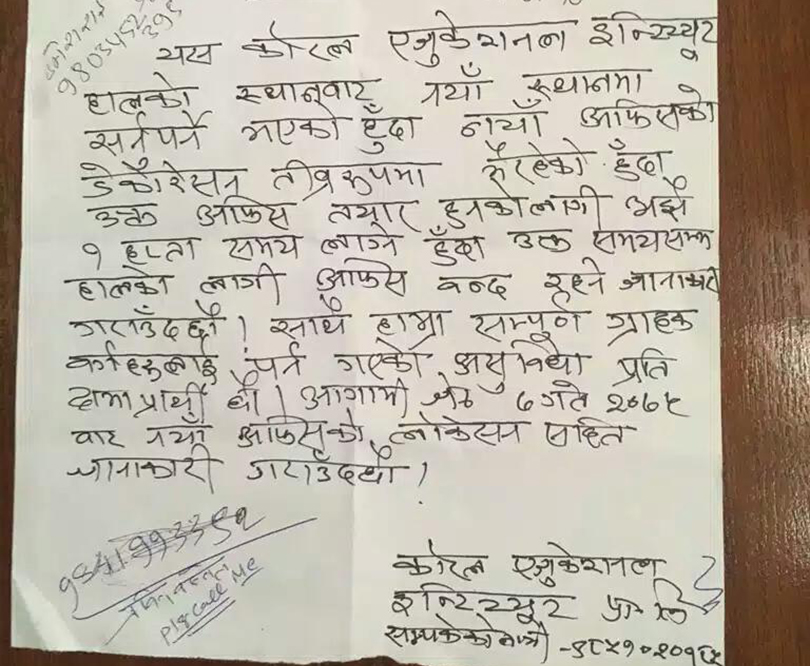 9803452395
यस कोरल एजुकेशनल इन्टिच्युट
हालको स्थानवाट नयाँ स्थानमा
सर्नुपर्ने भएको हुँदा नयाँ अफिसको
डेकोरेसन तीव्ररुपमा भैरहेको हुँदा
उक्त अफिस तयार हुनकोलागी अझै
१ हप्ता समय लाग्ने हुँदा उक्त समयसम्म
हालको लागी अफिस वन्द रहने जानाकारी
गराउँदछौं। साथै हाम्रा सम्पूर्ण ग्राहक
वर्गहरुलाई पर्न गएको असुविधा प्रति
क्षमा प्रार्थी छौं। आगामी जेठ ७ गते २०७५
वाट नयाँ अफिसको लोकेसन सहित
जानाकारी गराउँदछौं।
9841993352
pls call Me
कोरल एजुकेशनल
इन्टिच्युट प्रा लि
सम्पर्कको लागी